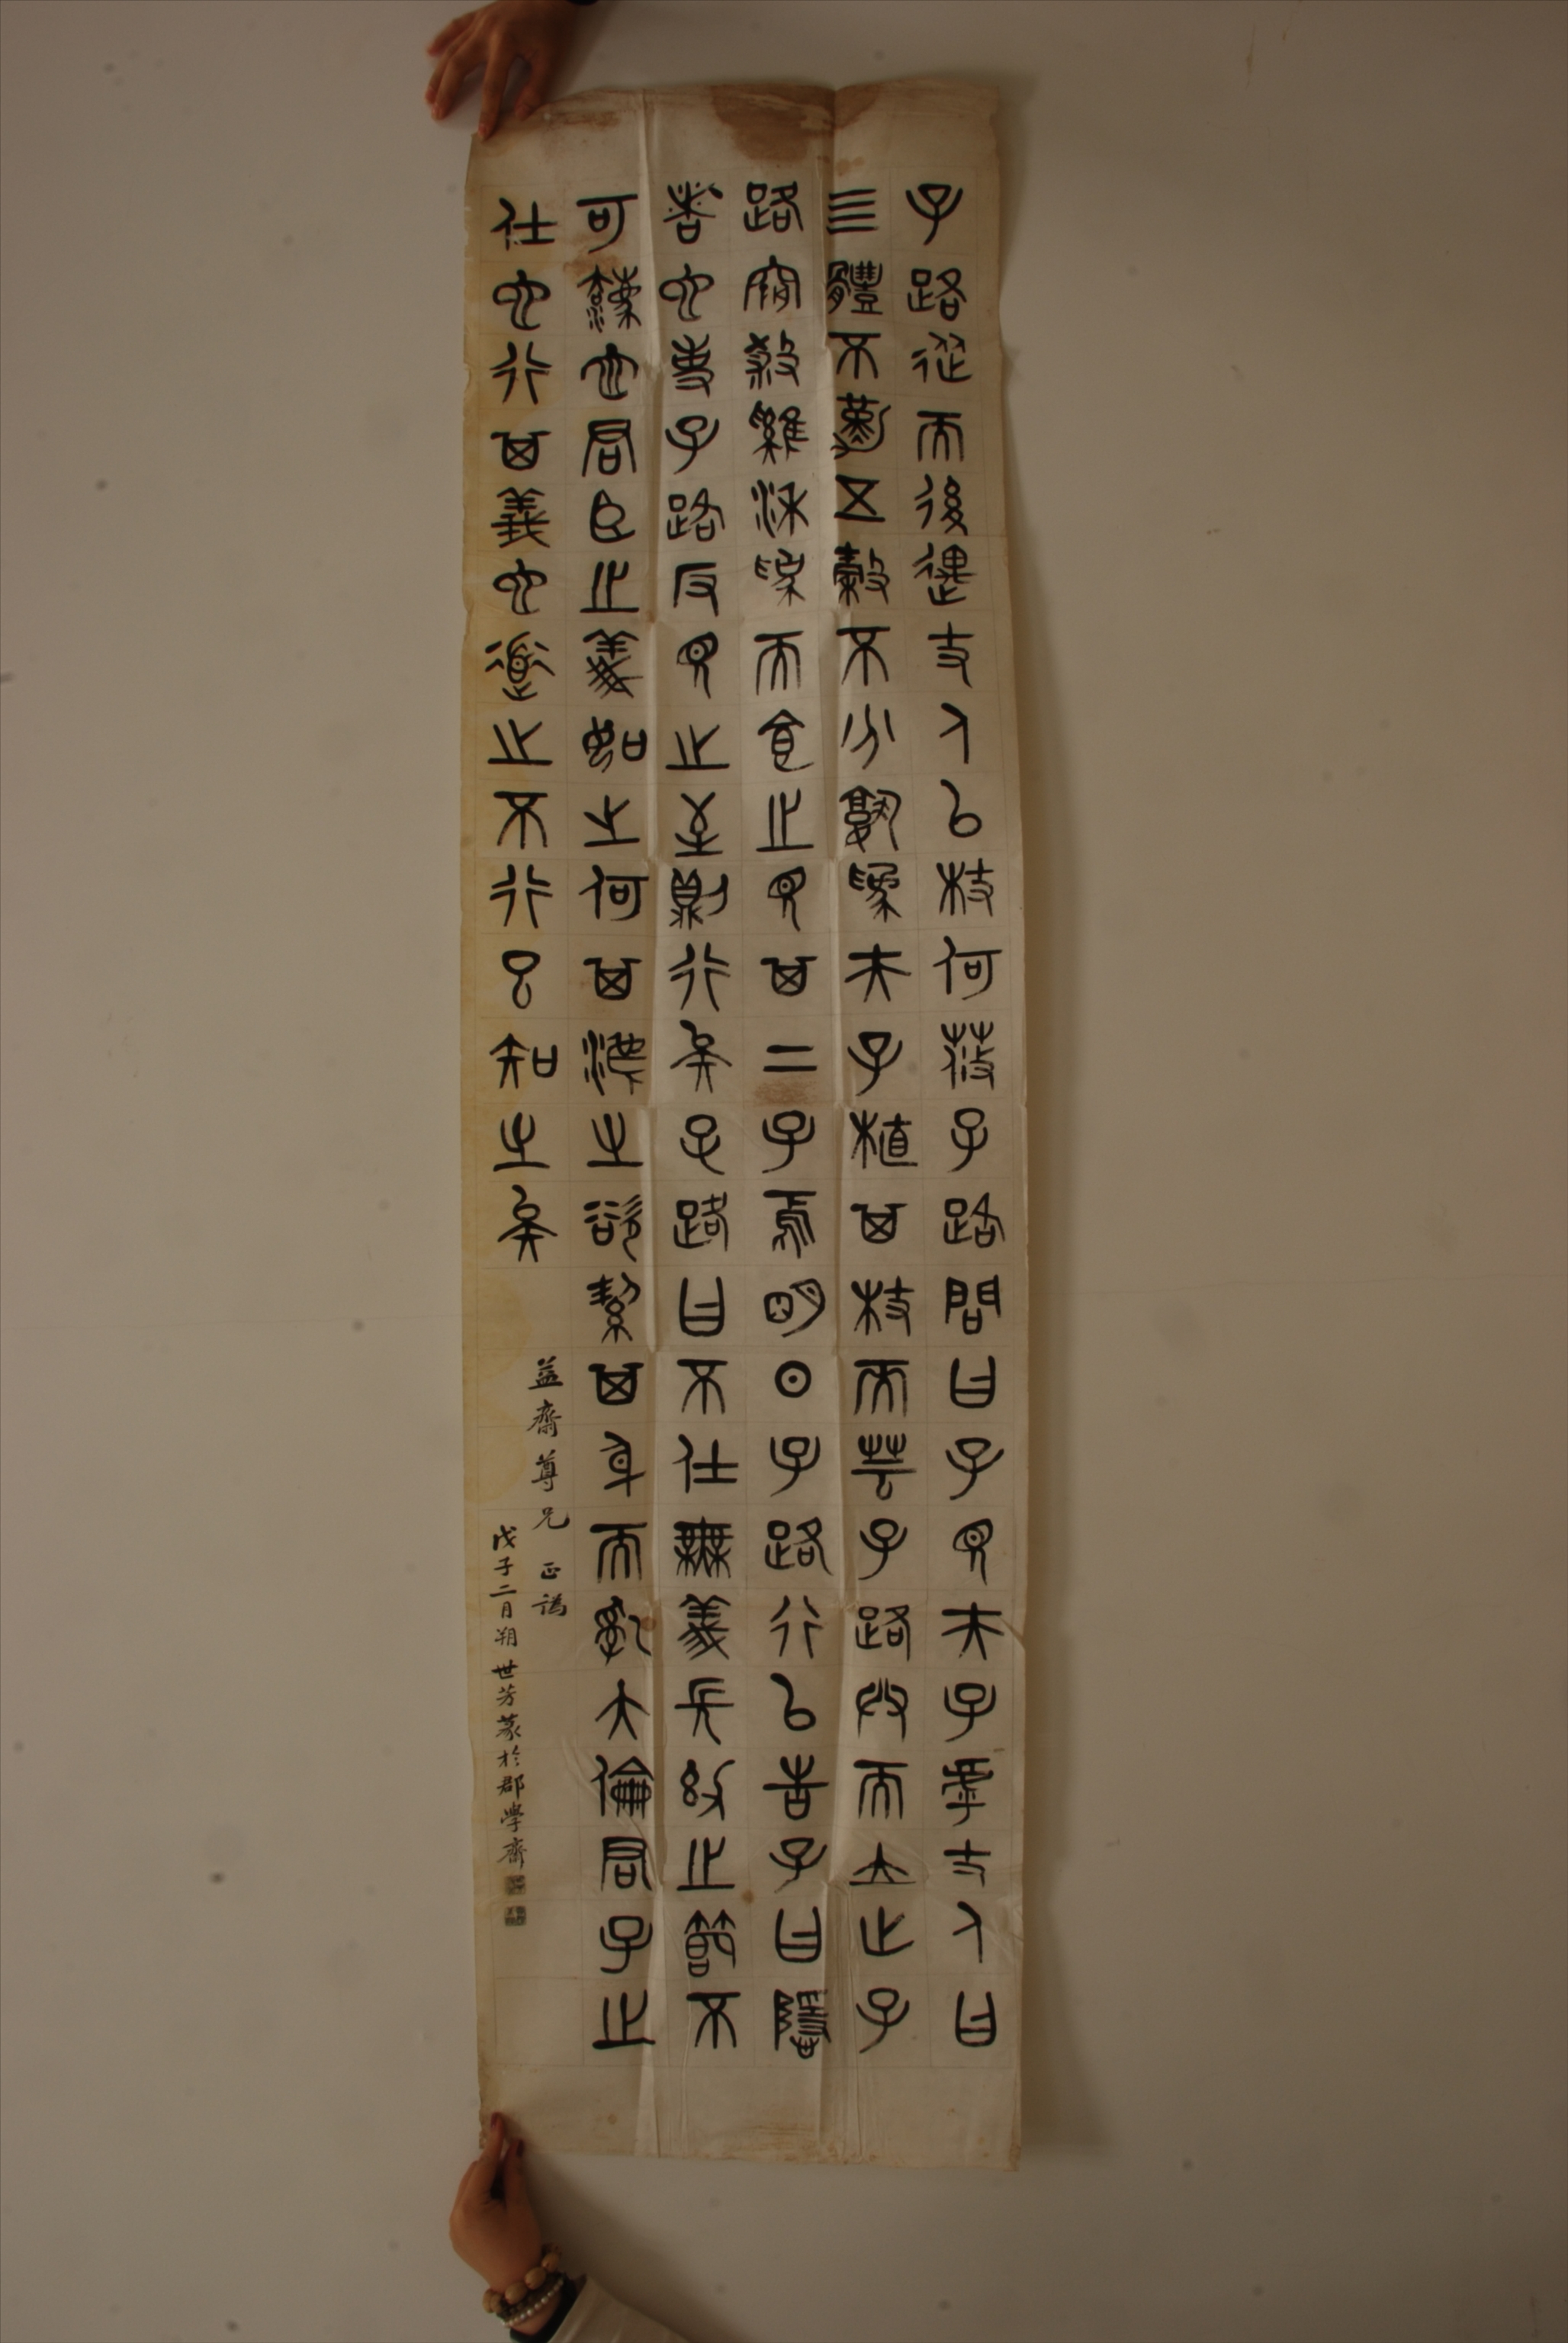 子路從而後遇丈人以杖何莜子路問曰子見夫子乎丈人曰
亖體不勤五穀不分孰爲夫子植其杖而芸子路拱而立止子
路宿殺雞黍爲而食之見其二子焉明日子路行以告子曰隱
者也使子路反見之至則行矣子路曰不仕無義長幼之節不
可廢也君臣之義如之何其廢之欲絜其身而亂大倫君子之
仕也行其義也道之不行已知之矣
益齋尊兄 正譌
戊子二月朔世芳篆於郡學齋